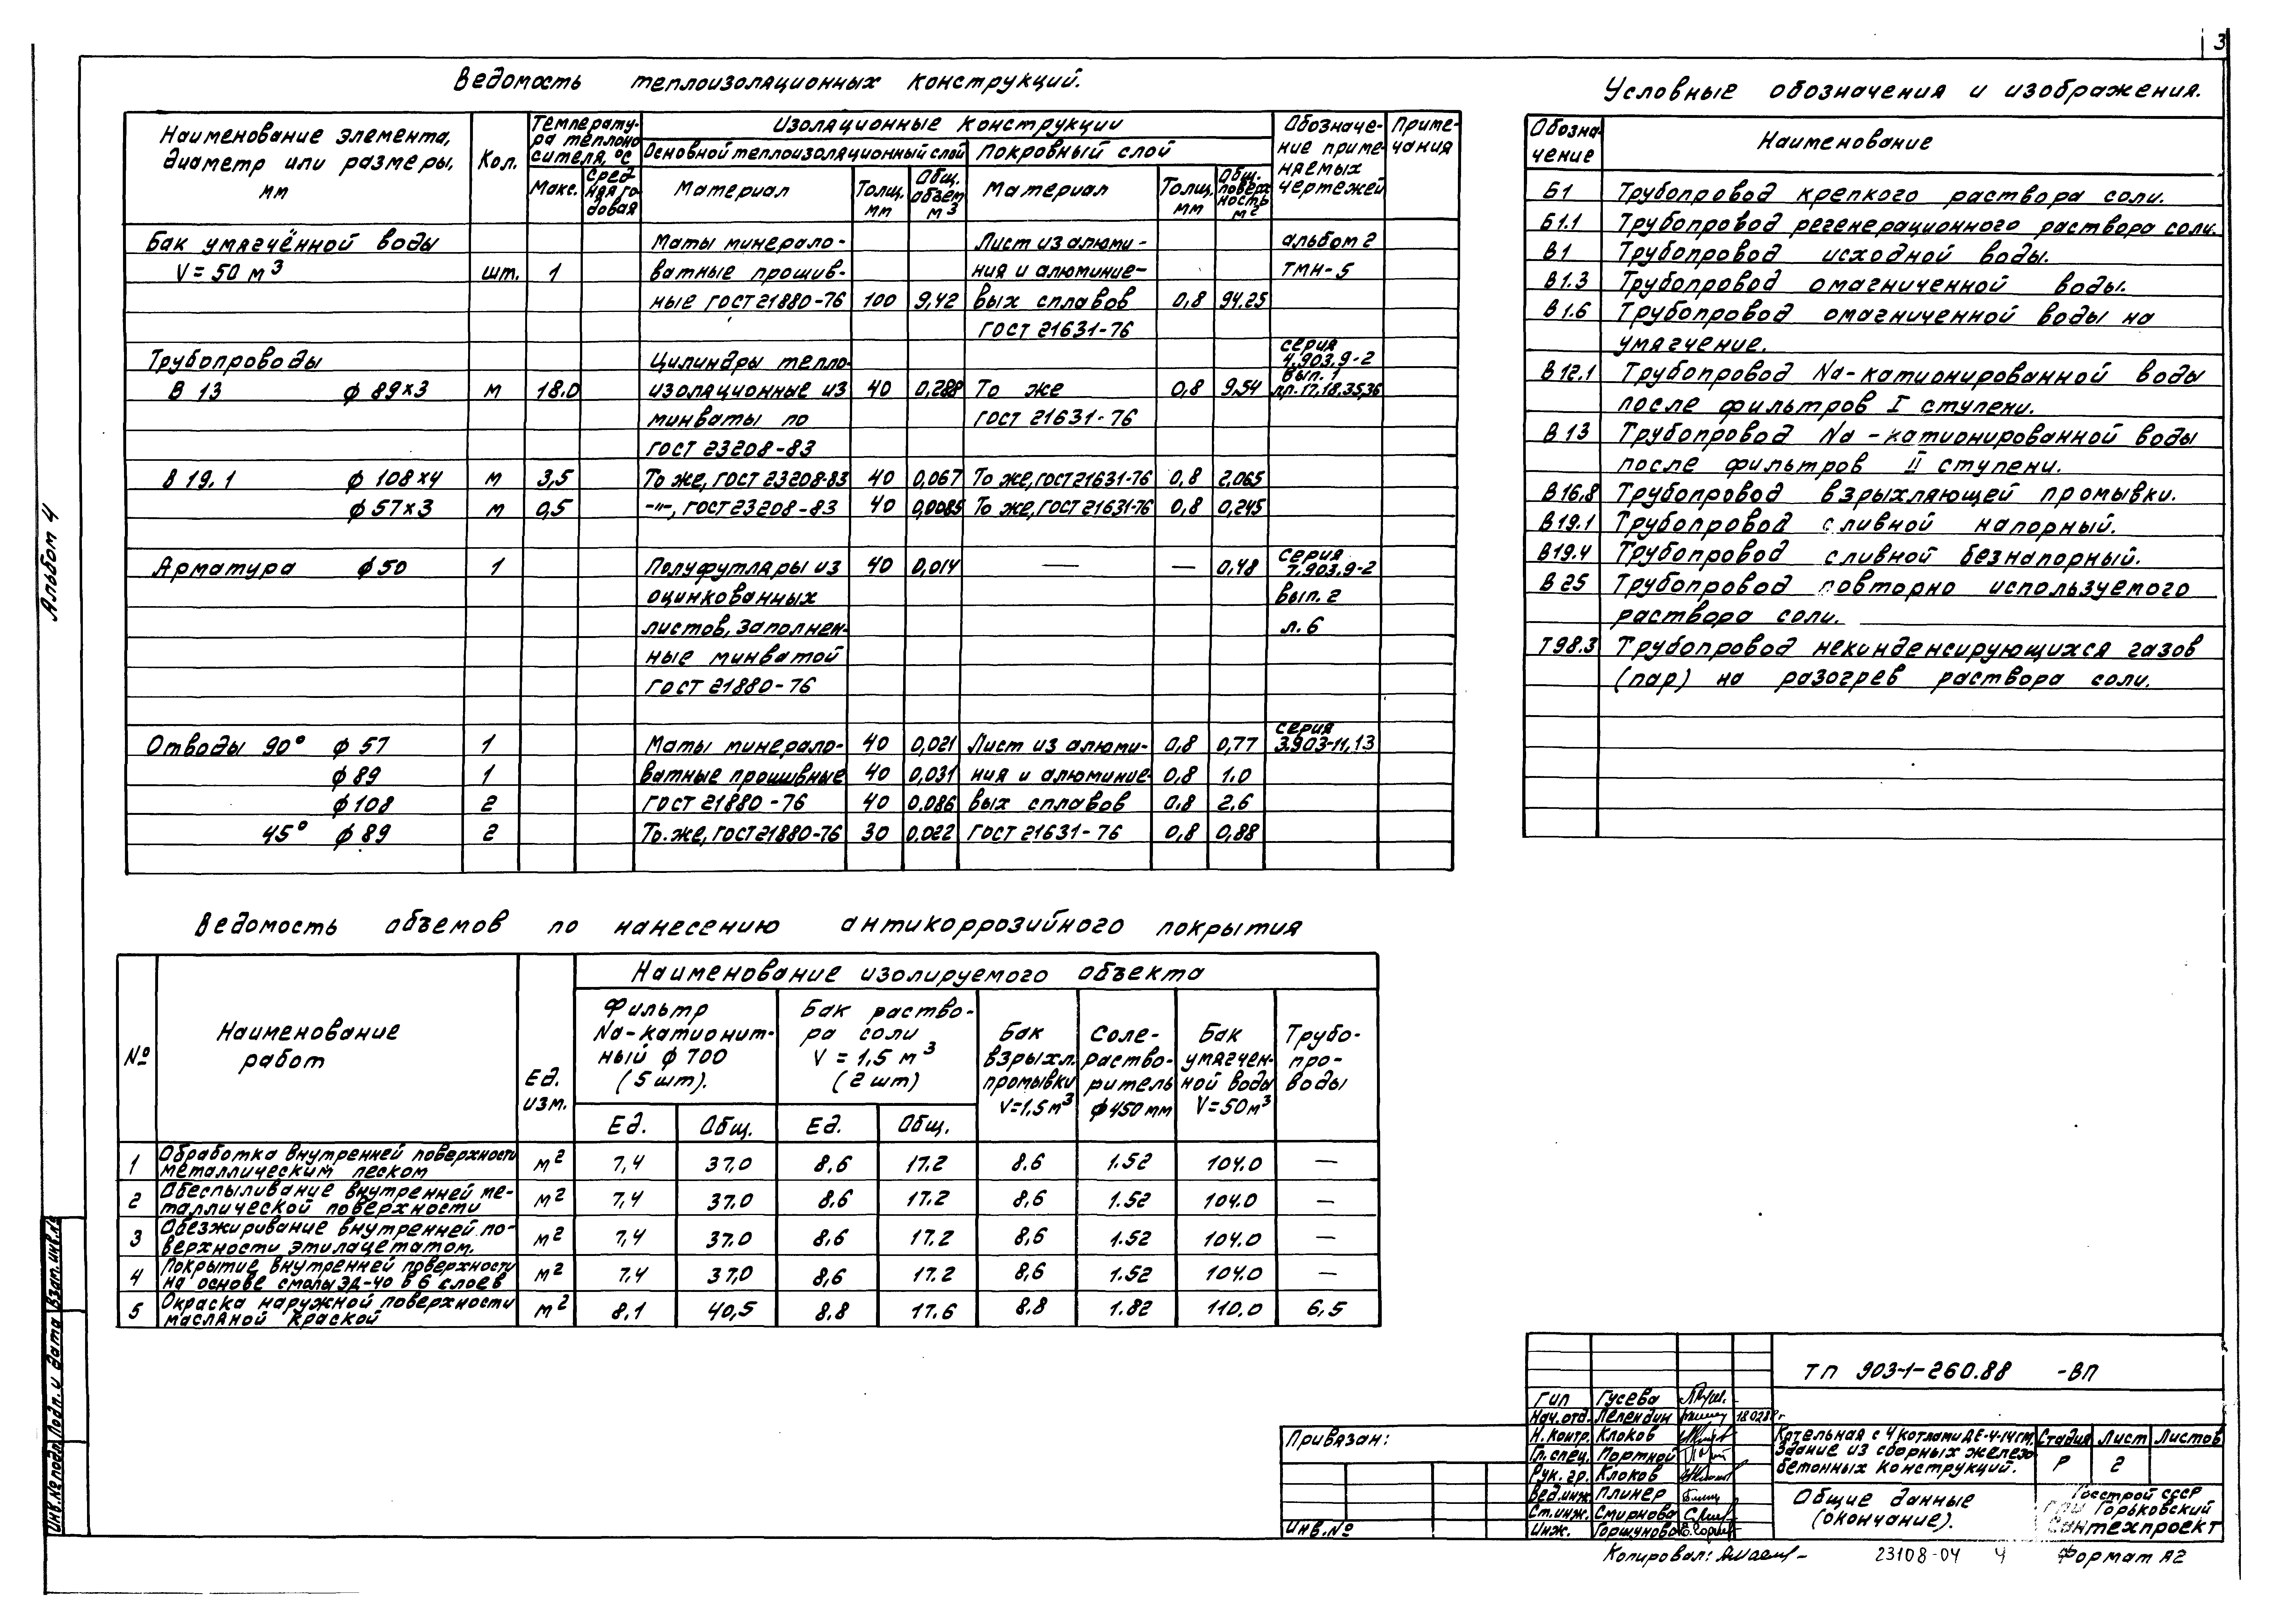 3
Ведомость теплоизоляционных конструкций.
Наименование элемента, диаметр или размеры, мм
Кол.
Температура теплоносителя, °С
Макс.
Средняя годовая
Изоляционные конструкции
Основной теплоизоляционный слой
Покровный слой
Материал
Толщ. мм
Общ. объем м³
Материал
Толщ. мм
Общ. поверхность м²
Обозначение применяемых чертежей
Примечания
Бак умягчённой воды Маты минерало- Лист из алюми- альбом 2
V = 50 м³ шт. 1 ватные прошив- ния и алюминие- ТМН-5
ные ГОСТ 21880-76 100 9,42 вых сплавов 0,8 94.25
ГОСТ 21631-76
Трубопроводы Цилиндры тепло- серия 4.903.9-2
В 13 ф 89×3 м 18.0 изоляционные из 40 0,288 То же 0,8 9.54 вып. 1 л.р. 17,18,35,36
минваты по ГОСТ 21631-76
ГОСТ 23208-83
В 19.1 ф 108×4 м 3,5 То же, ГОСТ 23208-83 40 0,067 То же, ГОСТ 21631-76 0,8 2,065
ф 57×3 м 0,5 -"-, ГОСТ 23208-83 40 0,0085 То же, ГОСТ 21631-76 0,8 0,245
Арматура ф 50 1 Полуфутляры из 40 0,014 — — 0,48 серия 7.903.9-2
оцинкованных вып. 2
листов, заполнен- л. 6
ные минватой
ГОСТ 21880-76
Отводы 90° ф 57 1 Маты минерало- 40 0,021 Лист из алюми- 0,8 0,77 серия 3.903-11,13
ф 89 1 ватные прошивные 40 0,031 ния и алюминие- 0,8 1.0
ф 108 2 ГОСТ 21880-76 40 0.086 вых сплавов 0.8 2,6
45° ф 89 2 То же, ГОСТ 21880-76 30 0.022 ГОСТ 21631-76 0,8 0,88
Условные обозначения и изображения.
Обозна-чение Наименование
Б1 Трубопровод крепкого раствора соли.
Б1.1 Трубопровод регенерационного раствора соли.
В1 Трубопровод исходной воды.
В1.3 Трубопровод омагниченной воды.
В1.6 Трубопровод омагниченной воды на
умягчение.
В12.1 Трубопровод Na-катионированной воды
после фильтров I ступени.
В13 Трубопровод Na-катионированной воды
после фильтров II ступени.
В16.8 Трубопровод взрыхляющей промывки.
В19.1 Трубопровод сливной напорный.
В19.4 Трубопровод сливной безнапорный.
В25 Трубопровод повторно используемого
раствора соли.
Т98.3 Трубопровод некинденсирующихся газов
(пар) на разогрев раствора соли.
Ведомость объемов по нанесению антикоррозийного покрытия
№
Наименование работ
Ед. изм.
Наименование изолируемого объекта
Фильтр Na-катионит-ный ф 700 (5 шт).
Бак раство-ра соли V = 1,5 м³ (2 шт)
Бак взрыхл. промывки V=1,5 м³
Соле-раство-ритель ф 450 мм
Бак умягчен-ной воды V=50 м³
Трубо-про-воды
Ед. Общ. Ед. Общ.
1 Обработка внутренней поверхности металлическим песком м² 7,4 37,0 8,6 17.2 8.6 1.52 104.0 —
2 Обеспыливание внутренней ме-таллической поверхности м² 7,4 37.0 8.6 17.2 8,6 1.52 104.0 —
3 Обезжиривание внутренней по-верхности этилацетатом. м² 7,4 37.0 8,6 17.2 8,6 1.52 104.0 —
4 Покрытие внутренней поверхности на основе смолы ЭД-40 в 6 слоев м² 7.4 37,0 8,6 17.2 8,6 1.52 104.0 —
5 Окраска наружной поверхности масляной краской м² 8,1 40,5 8,8 17.6 8.8 1.82 110.0 6,5
Альбом 4
Взам. инв. №
Подп. и дата
Инв. № подл.
Привязан:
Инв. №
ТП 903-1-260.88 -ВП
ГИП Гусева
Нач. отд. Лелендин 18.02.88г
Н. контр. Клоков
Гл. спец. Портной
Рук. гр. Клоков
Вед. инж. Плинер
Ст. инж. Смирнова
Инж. Горшунова
Котельная с 4 котлами ДЕ-4-14ГМ.
Здание из сборных железо-
бетонных конструкций.
Стадия Лист Листов
Р 2
Общие данные
(окончание).
Госстрой СССР
ГПИ Горьковский
Сантехпроект
Копировал:
23108-04 4
Формат А2